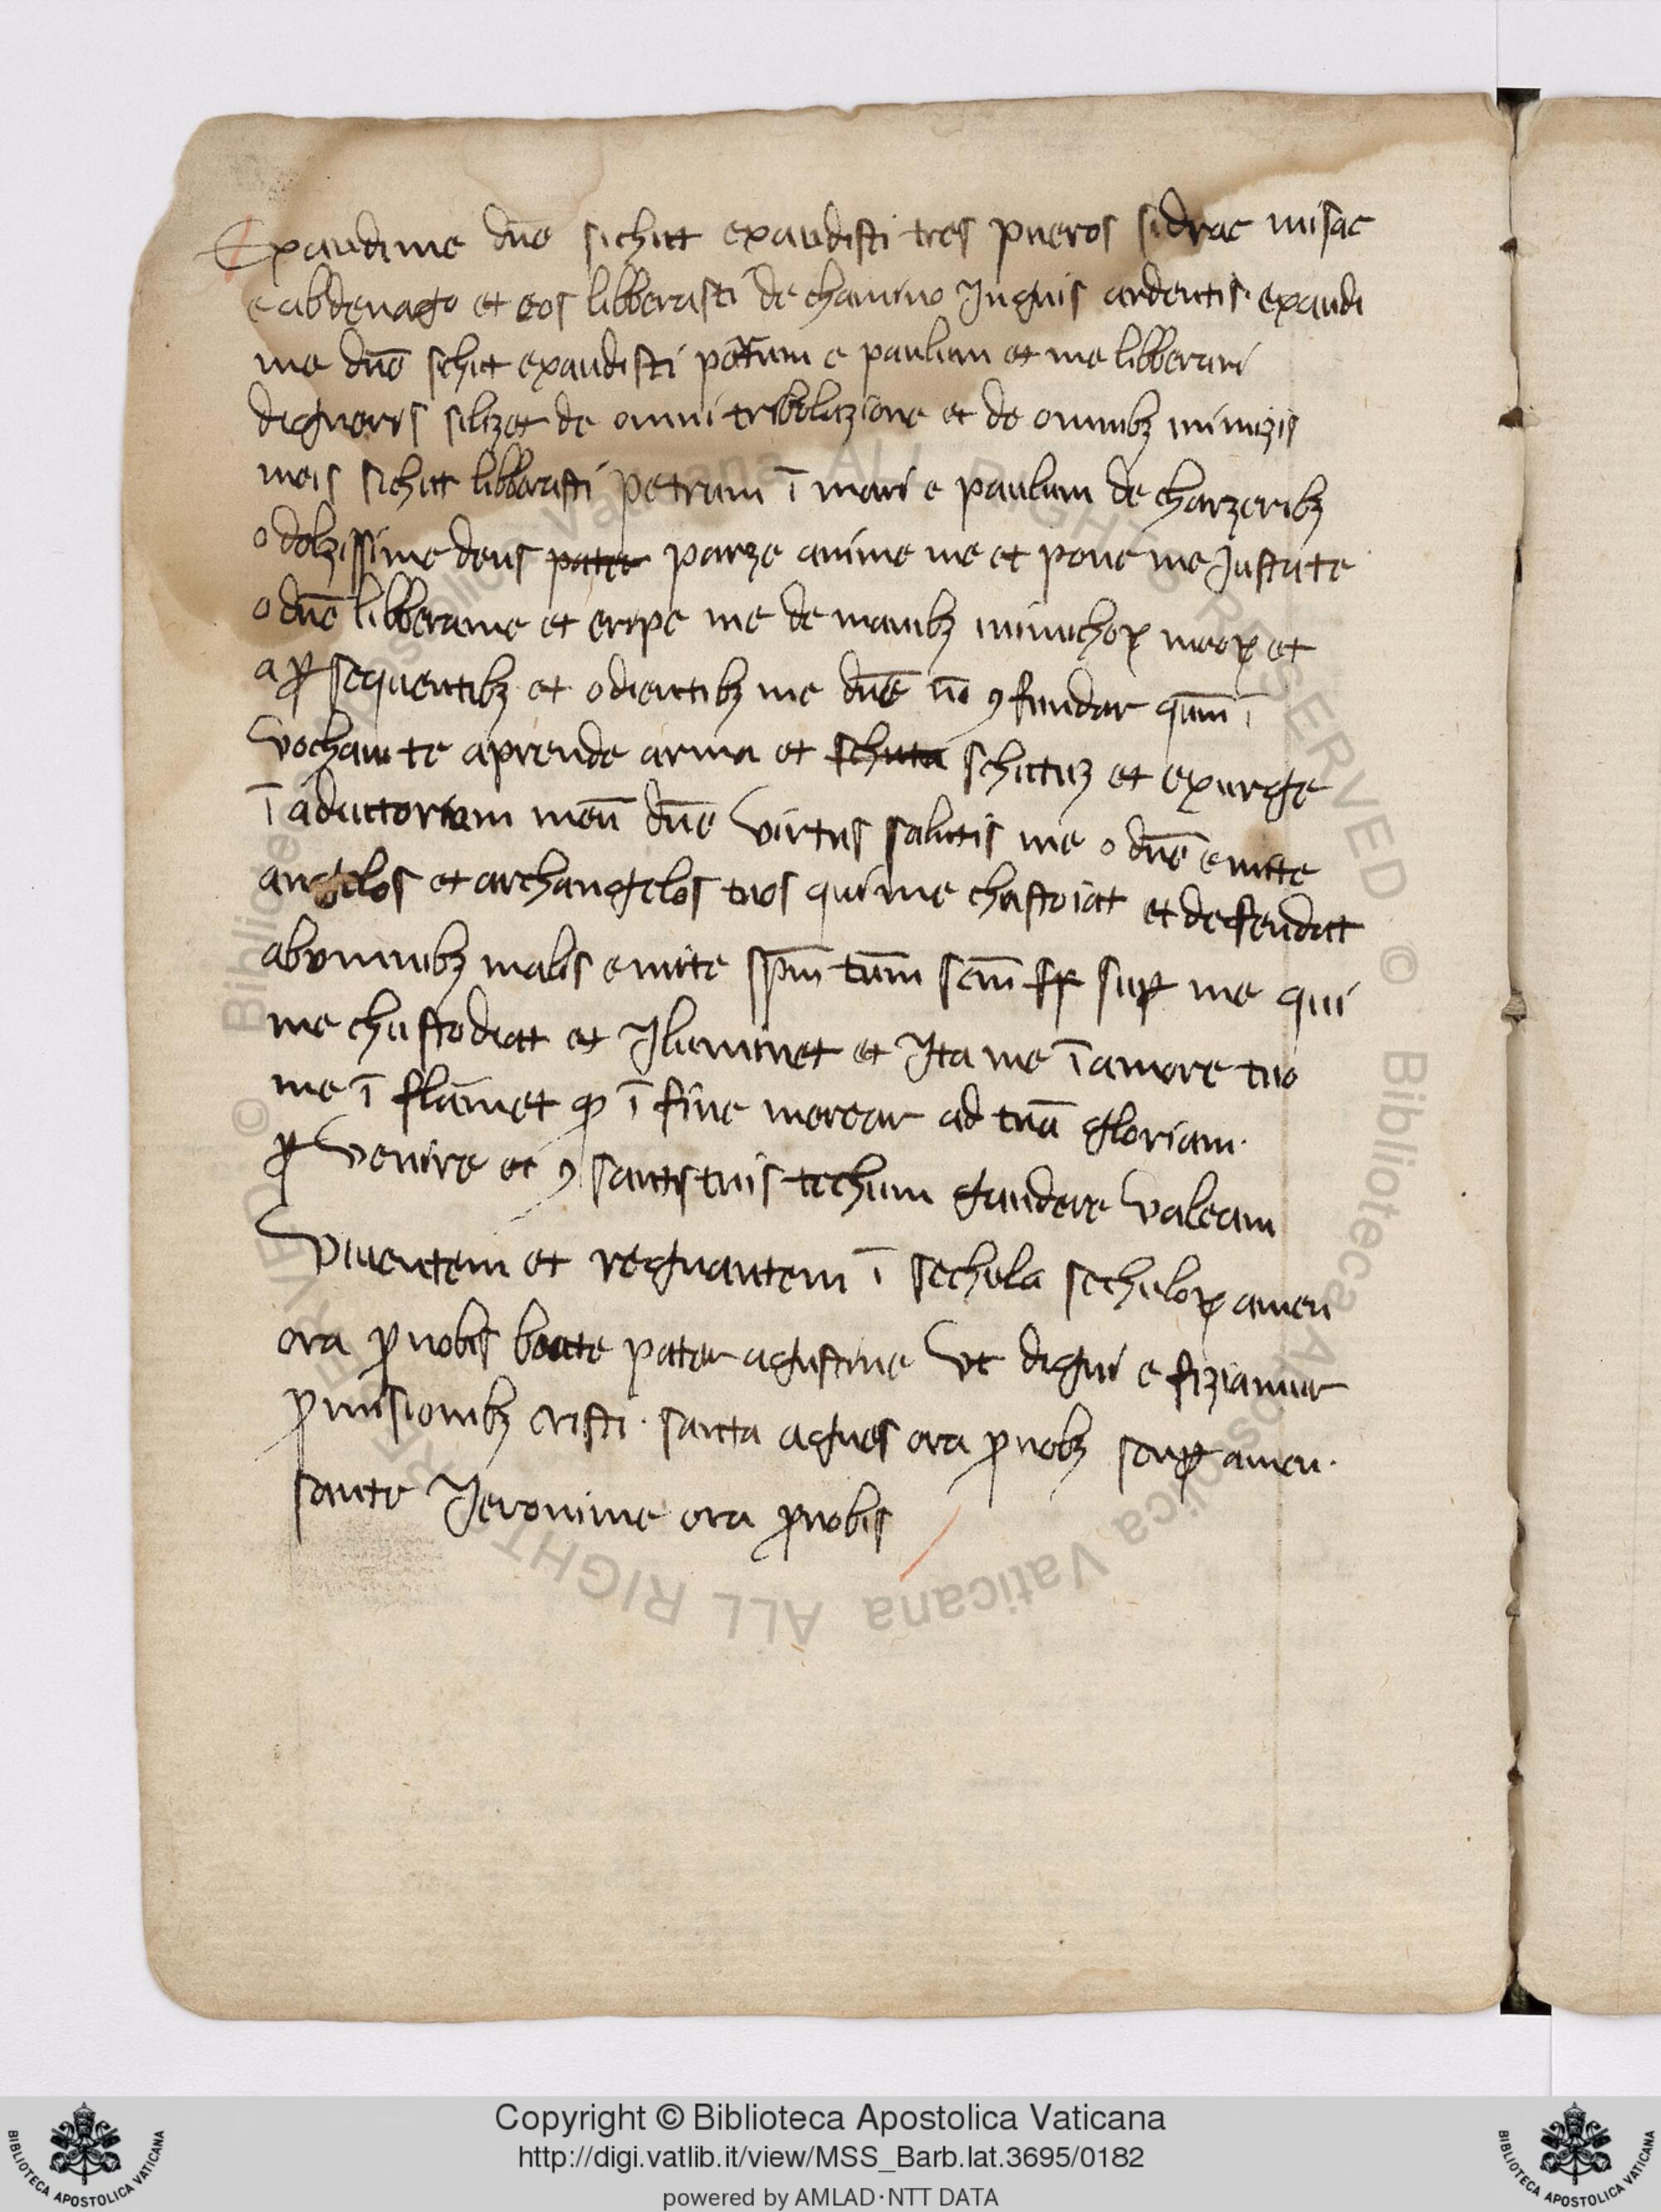 Exaudime dn̄e sichut exaudisti tres pueros sidrac misac
e abdenago et eos libberasti de chamino Inguis ardentis · exaudi
me dn̄e sichut exaudisti petrum e paulum et me libberari
digneris silizet de omni tribolazione et de omnibꝫ inimizis
meis sichut libberasti petrum ī mari e paulum de charzeribꝫ
o dolzissime deus pater parze anime me et pone me Justa te
o dn̄e libberame et eripe me de manibꝫ inimichoꝝ meoꝝ et
a ꝑsequentibꝫ et odientibꝫ me dn̄e nō ꝯfundar qūm ī
vocham te aprende arma et schuta schutuꝫ et exurge
ī aduttorium meū dn̄e virtus salutis me o dn̄e emitte
angelos et archangelos tuos qui me chustoiat et deffendat
abomnibꝫ malis emitte sp̄m tūm scm̄ suꝑ me qui
me chustodiat et Iluminet et Ita me ī amore tuo
me ī flāmet ꝙ ī fine merear ad tuā gloriam ·
ꝑvenire et ꝯ santis tuis techum gaudere valeam
viuentem et regnantem ī sechula sechuloꝝ amen
ora ꝓ nobis beate pater agustine vt digni efiziamur
ꝓmisionibꝫ cristi · santa agnes ora ꝓ nobꝫ senꝑ amen ·
sante Jeronime ora ꝓ nobis
Copyright © Biblioteca Apostolica Vaticana
http://digi.vatlib.it/view/MSS_Barb.lat.3695/0182
powered by AMLAD·NTT DATA
BIBLIOTECA APOSTOLICA VATICANA
BIBLIOTECA APOSTOLICA VATICANA
© Biblioteca Apostolica Vaticana ALL RIGHTS RESERVED © Biblioteca Apostolica Vaticana ALL RIGHTS RESERVED